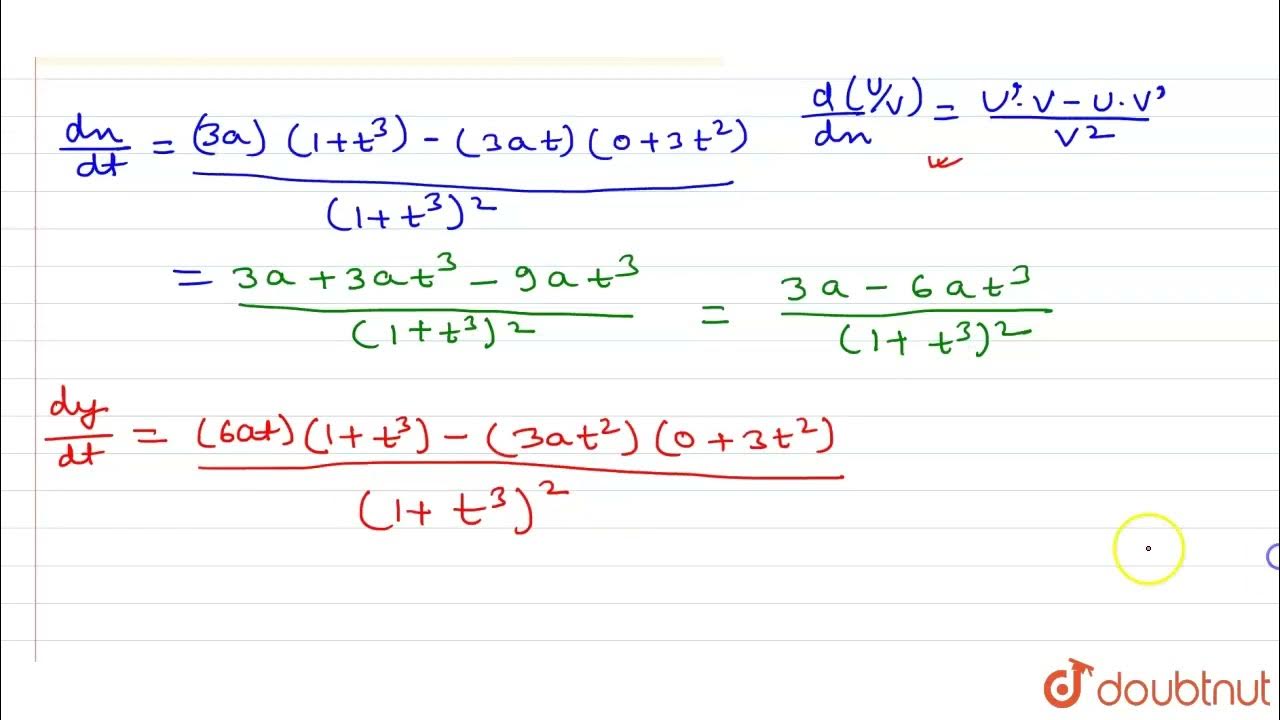 dn/dt = (3a) (1+t³) - (3at) (0+3t²) / (1+t³)²
d(U/V)/dn = U'·V - U·V' / V²
= 3a + 3at³ - 9at³ / (1+t³)² = 3a - 6at³ / (1+t³)²
dy/dt = (6at) (1+t³) - (3at²) (0+3t²) / (1+t³)²
doubtnut